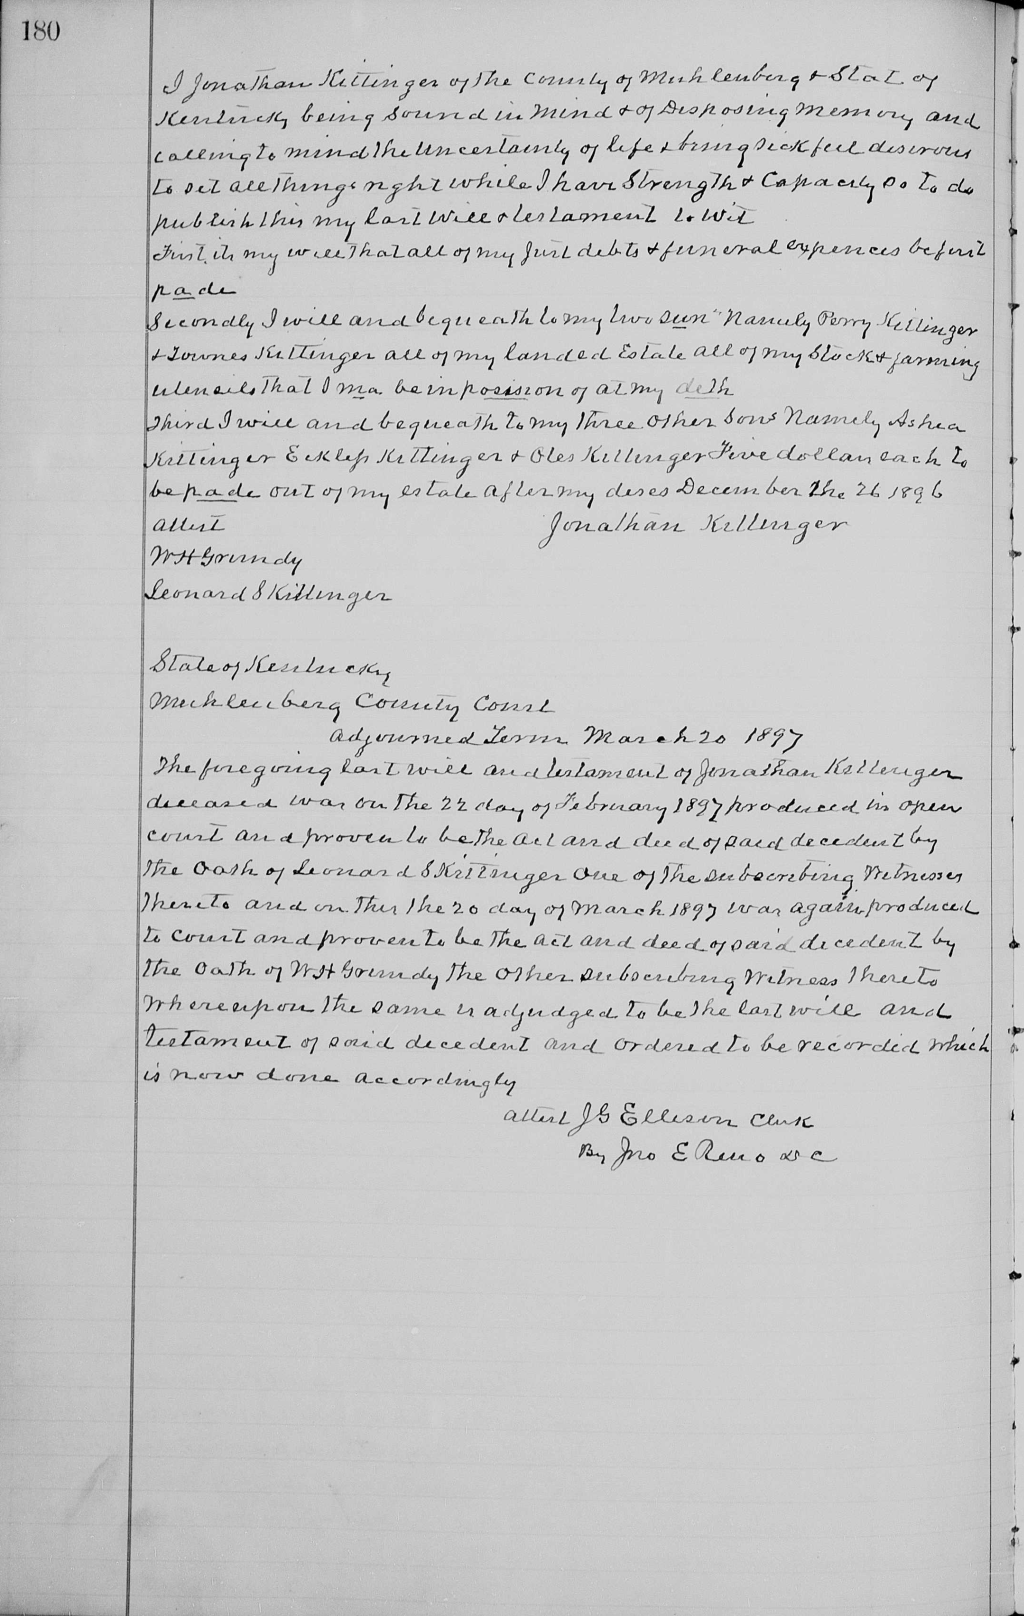 180
I Jonathan Kittinger of the County of Muhlenberg & Stat of
Kentucky being Sound in Mind & of Disposing Memory and
calling to mind the Uncertainty of life & being sick feel desirous
to set all things right while I have Strength & Capacity so to do
publish this my last Will & testament to Wit
First, its my will that all of my Just debts & funeral expences be first
pade
Secondly I will and bequeath to my two suns Namely Perry Kittinger
& Townes Kittinger all of my landed Estate all of my Stock & farming
utensils that I ma be in posision of at my deth
Third I will and bequeath to my three other Sons Namely Ashea
Kittinger Ecklep Kittinger & Oles Kittinger Five dollars each to
be pade out of my estate after my deses December the 26 1896
Attest Jonathan Kittinger
W H Grundy
Leonard S Kittinger
State of Kentucky
Muhlenberg County Court
Adjourned Term March 20 1897
The foregoing last will and testament of Jonathan Kittinger
deceased was on the 22 day of February 1897 produced in open
court and proven to be the act and deed of said decedent by
the Oath of Leonard S Kittinger one of the subscribing Witnesses
thereto and on this the 20 day of March 1897 was again produced
to court and proven to be the act and deed of said decedent by
the Oath of W H Grundy the other subscribing Witness thereto
Whereupon the same is adjudged to be the last will and
testament of said decedent and ordered to be recorded which
is now done accordingly
Attest J G Ellison Clerk
By Jno E Reno D C